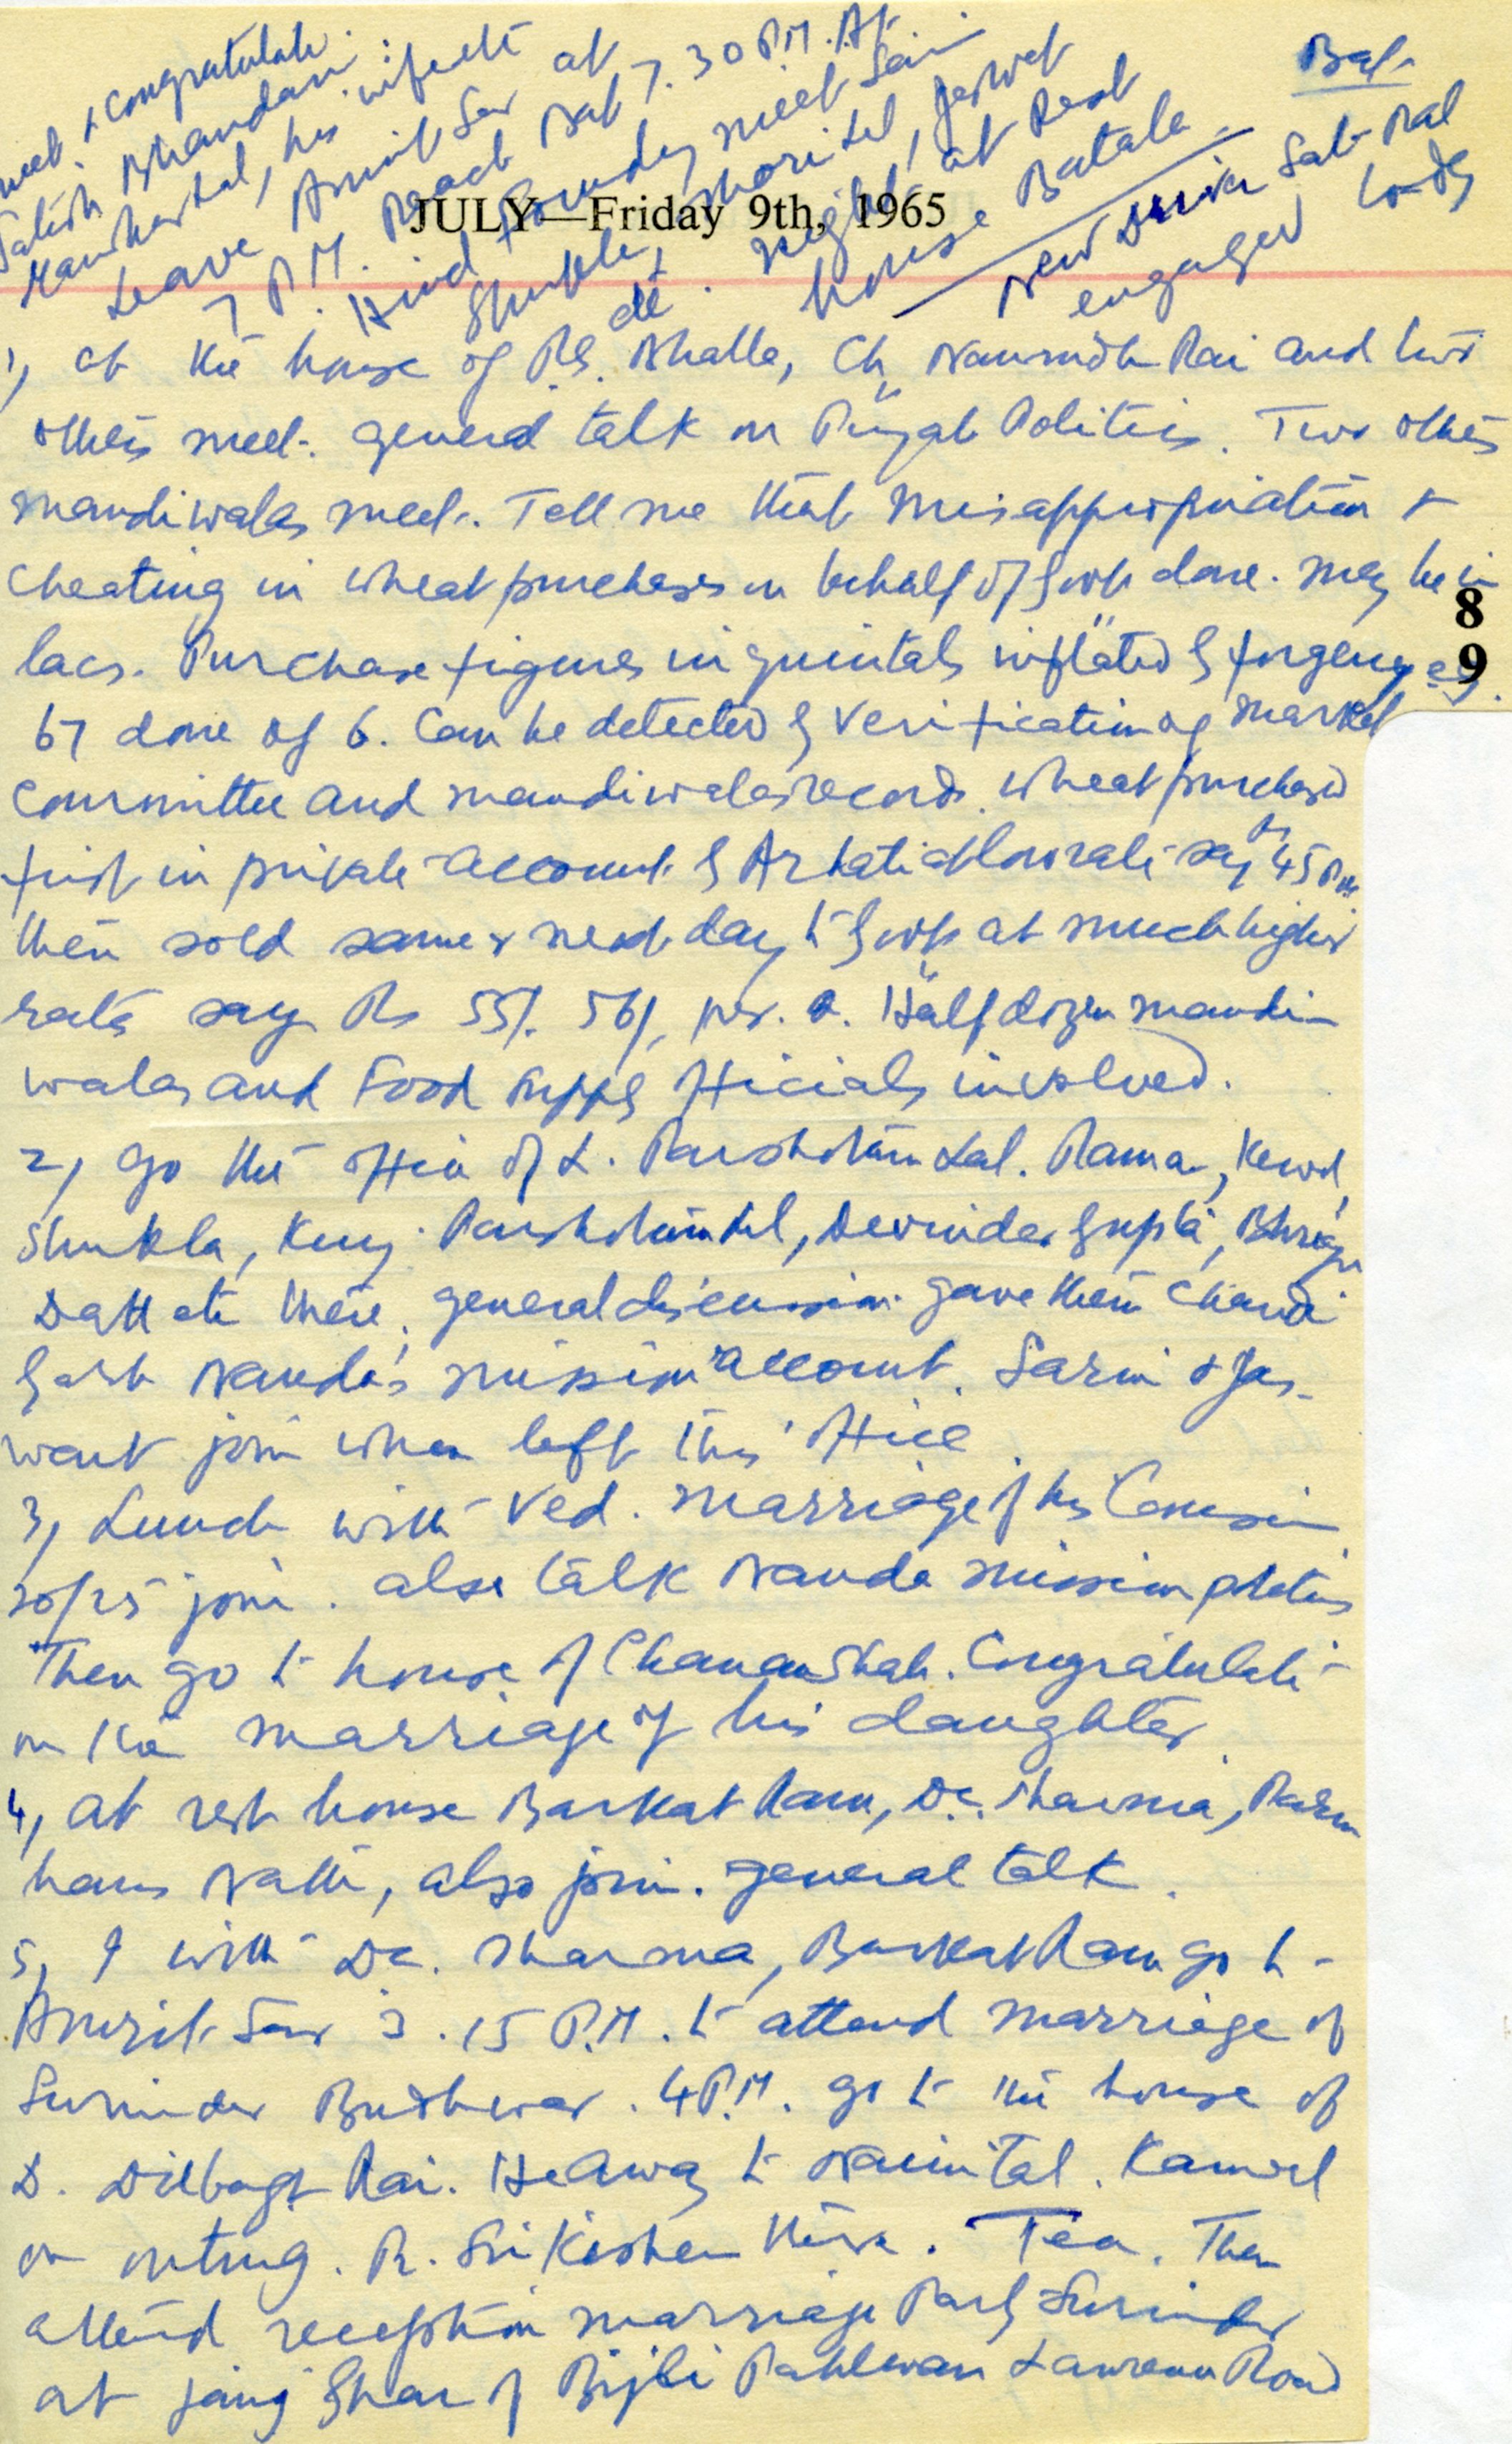 Bat-
meet & congratulate
Satish Bhandari
Manohar Lal, his wife etc at
Leave Amrit Sar at
7 P.M. Reach Bat 7.30 P.M. At
Hind Foundry meet Sain
Shukla, Shori Lal, Jaswant
etc. Night at Rest
house Batala
New Driver Sat Pal
engaged today
JULY—Friday 9th, 1965
1, at the house of R.S. Bhalla, Ch. Naunidh Rai and two
others meet. general talk on Punjab Politics. Two others
mandiwalas meet. Tell me that misappropriation &
cheating in wheat purchases on behalf of Govt done. may be in
lacs. Purchase figures in quintals inflated by forgery eg.
67 done of 6. Can be detected by verification of market
committee and mandiwalas records. wheat purchased
first in private account by Arhatia at low rate say Rs 45 Rs
then sold same or next day to Govt at much higher
rate say Rs 55/. 56/, per. Q. Half dozen mandi-
walas and Food supply officials involved.
2, go the office of L. Parshotam Lal. Rama, Kewal,
Shukla, Kunj. Parshotam Lal, Devinder Gupta, Bhrigu
Datt etc there, general discussion. gave them Chandi
Garh Nanda's mission account. Sarin & Jas-
want join when left this office
3, Lunch with Ved. marriage of his Cousin
20/25 join. also talk Nanda mission politics
Then go to house of Chanan Shah. Congratulate
on the marriage of his daughter.
4, at rest house Barkat Ram, Dr. Sharma, Param
hans Nath, also join. general talk.
5, I with Dr. Sharma, Barkat Ram go to
Amrit Sar 3.15 P.M. to attend marriage of
Surinder Budhwar. 4 P.M. go to the house of
D. Dilbagh Rai. He away to Naini Tal. Kanwal
on outing. R. Sri Kishen there. Tea. Then
attend reception marriage Party Surinder
at Janj Ghar of Bijli Pahlwan Lawrence Road
8
9